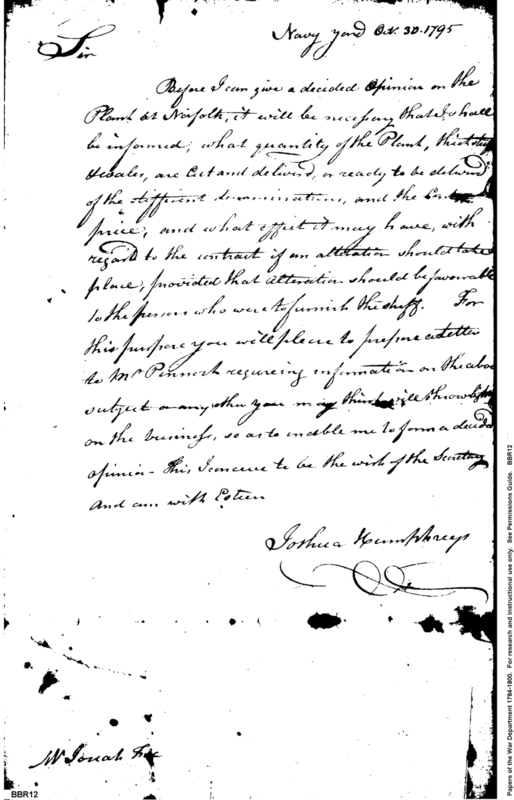 Navy yard Oct. 30. 1795
Sir
Before I can give a decided Opinion on the
Plank at Norfolk, it will be necessary that I shall
be informed, what quantity of the Plank, thickstuff
& wales, are Cut and deliverd, or ready to be deliverd
of the different denominations, and the
price, and what effect it may have, with
regard to the contract if an alteration should take
place, provided that alteration should be favourable
to the person who were to furnish the stuff. For
this purpose you will please to prepare a Letter
to Mr Pennock requireing information on the above
subject or any other you may think will throw light
on the business, so as to enable me to form a decided
opinion - This I conceive to be the wish of the Secretary
And am with Esteem
Joshua Humphreys
Mr Josiah Fox
BBR12
Papers of the War Department 1784-1800. For research and instructional use only. See Permissions Guide. BBR12